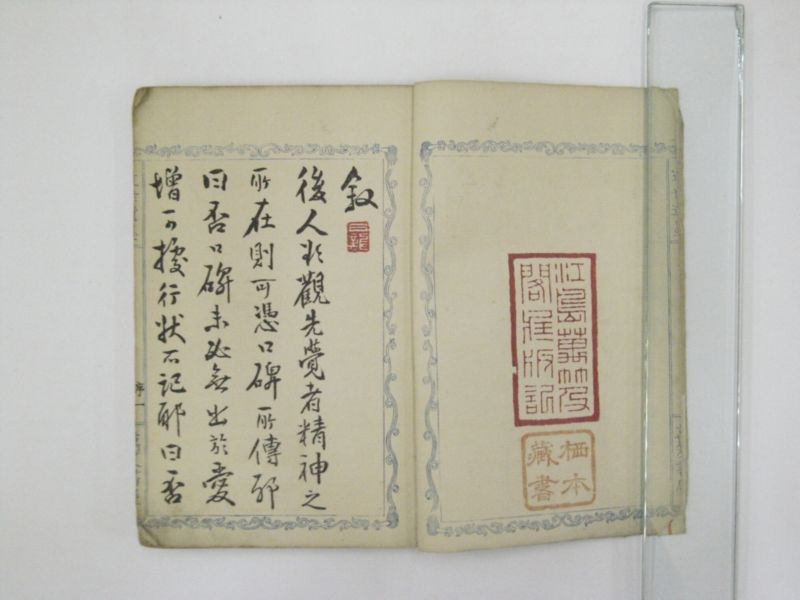 江島萬笈
閣版記
栖本
藏書
叙
後人欲觀先覺者精神之
所在則可憑口碑所傳耶
曰否口碑未必無出於愛
憎可據行状所記耶曰否